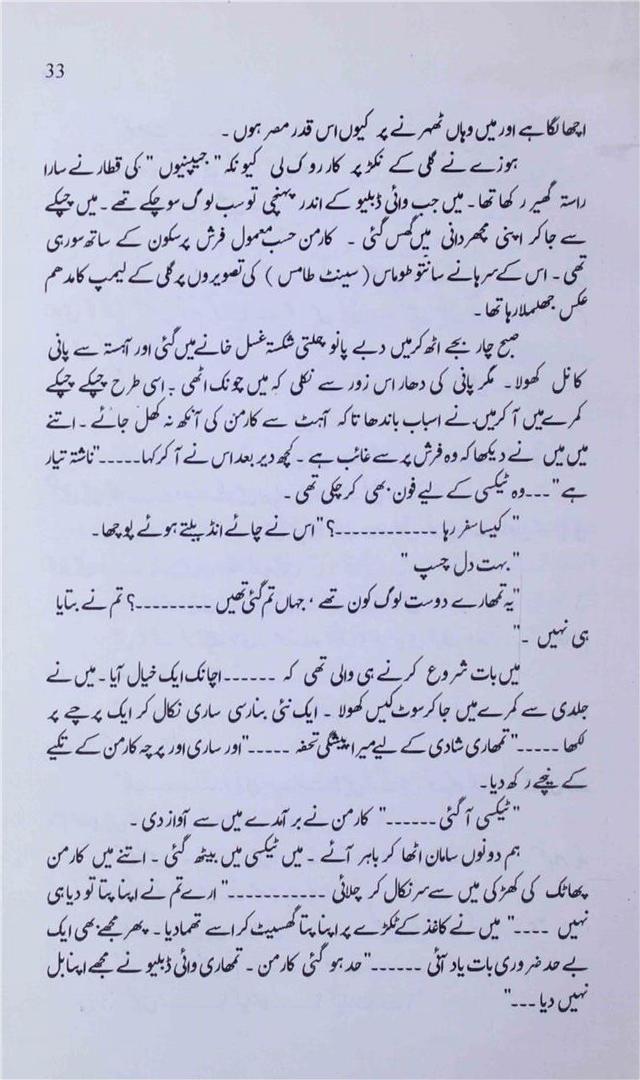 33
اچھا لگا ہے اور میں وہاں ٹھہرنے پر کیوں اس قدر مصر ہوں ۔
ہوزے نے گلی کے نکڑ پر کار روک لی کیونکہ " جیپنیوں " کی قطار نے سارا
راستہ گھیر رکھا تھا ۔ میں جب وائی ڈبلیو کے اندر پہنچی تو سب لوگ سو چکے تھے ۔ میں چپکے
سے جا کر اپنی مچھر دانی میں گھس گئی ۔ کارمن حسب معمول فرش پر سکون کے ساتھ سو رہی
تھی ۔ اس کے سرہانے سانتو طوماس ( سینٹ طامس ) کی تصویروں پر گلی کے لیمپ کا مدھم
عکس جھلملا رہا تھا ۔
صبح چار بجے اٹھ کر میں دبے پانو چلتی شکستہ غسل خانے میں گئی اور آہستہ سے پانی
کا نل کھولا ۔ مگر پانی کی دھار اس زور سے نکلی کہ میں چونک اٹھی ۔ اسی طرح چپکے چپکے
کمرے میں آ کر میں نے اسباب باندھا تا کہ آہٹ سے کارمن کی آنکھ نہ کھل جائے ۔ اتنے
میں میں نے دیکھا کہ وہ فرش پر سے غائب ہے ۔ کچھ دیر بعد اس نے آ کر کہا ----- " ناشتہ تیار
ہے " --- وہ ٹیکسی کے لیے فون بھی کر چکی تھی ۔
" کیسا سفر رہا ----------- ؟ " اس نے چائے انڈیلتے ہوئے پوچھا ۔
" بہت دل چسپ "
" یہ تمھارے دوست لوگ کون تھے ، جہاں تم گئی تھیں --------- ؟ تم نے بتایا
ہی نہیں ۔ "
میں بات شروع کرنے ہی والی تھی کہ ------ اچانک ایک خیال آیا ۔ میں نے
جلدی سے کمرے میں جا کر سوٹ کیس کھولا ۔ ایک نئی بنارسی ساری نکال کر ایک پرچے پر
لکھا ----- " تمھاری شادی کے لیے میرا پیشگی تحفہ ----- " اور ساری اور پرچہ کارمن کے تکیے
کے نیچے رکھ دیا ۔
" ٹیکسی آ گئی ------ " کارمن نے برآمدے میں سے آواز دی ۔
ہم دونوں سامان اٹھا کر باہر آئے ۔ میں ٹیکسی میں بیٹھ گئی ۔ اتنے میں کارمن
پھاٹک کی کھڑکی میں سے سر نکال کر چلائی ----------- " ارے تم نے اپنا پتا تو دیا ہی
نہیں ---- " میں نے کاغذ کے ٹکڑے پر اپنا پتا گھسیٹ کر اسے تھما دیا ۔ پھر مجھے بھی ایک
بے حد ضروری بات یاد آئی ------ " حد ہو گئی کارمن ۔ تمھاری وائی ڈبلیو نے مجھے اپنا بل
نہیں دیا --- "